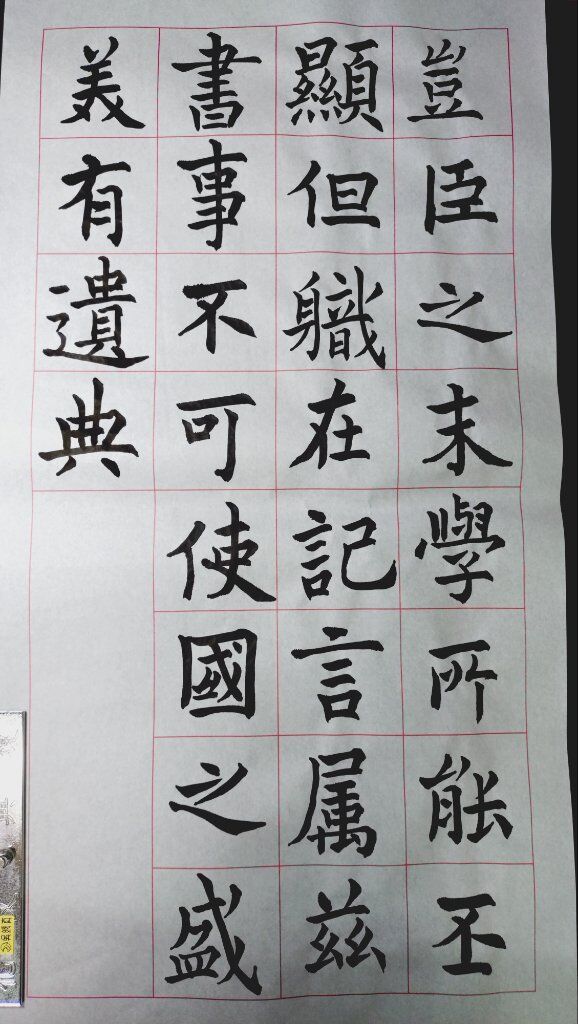 豈臣之末學所能丕
顯但軄在記言属兹
書事不可使國之盛
美有遺典